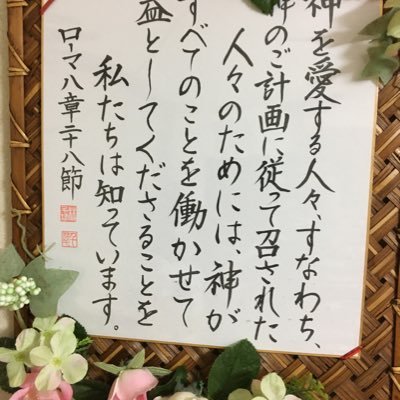 神を愛する人々、すなわち、
神のご計画に従って召された
人々のためには、神が
すべてのことを働かせて
益としてくださることを
私たちは知っています。
ローマ八章二十八節